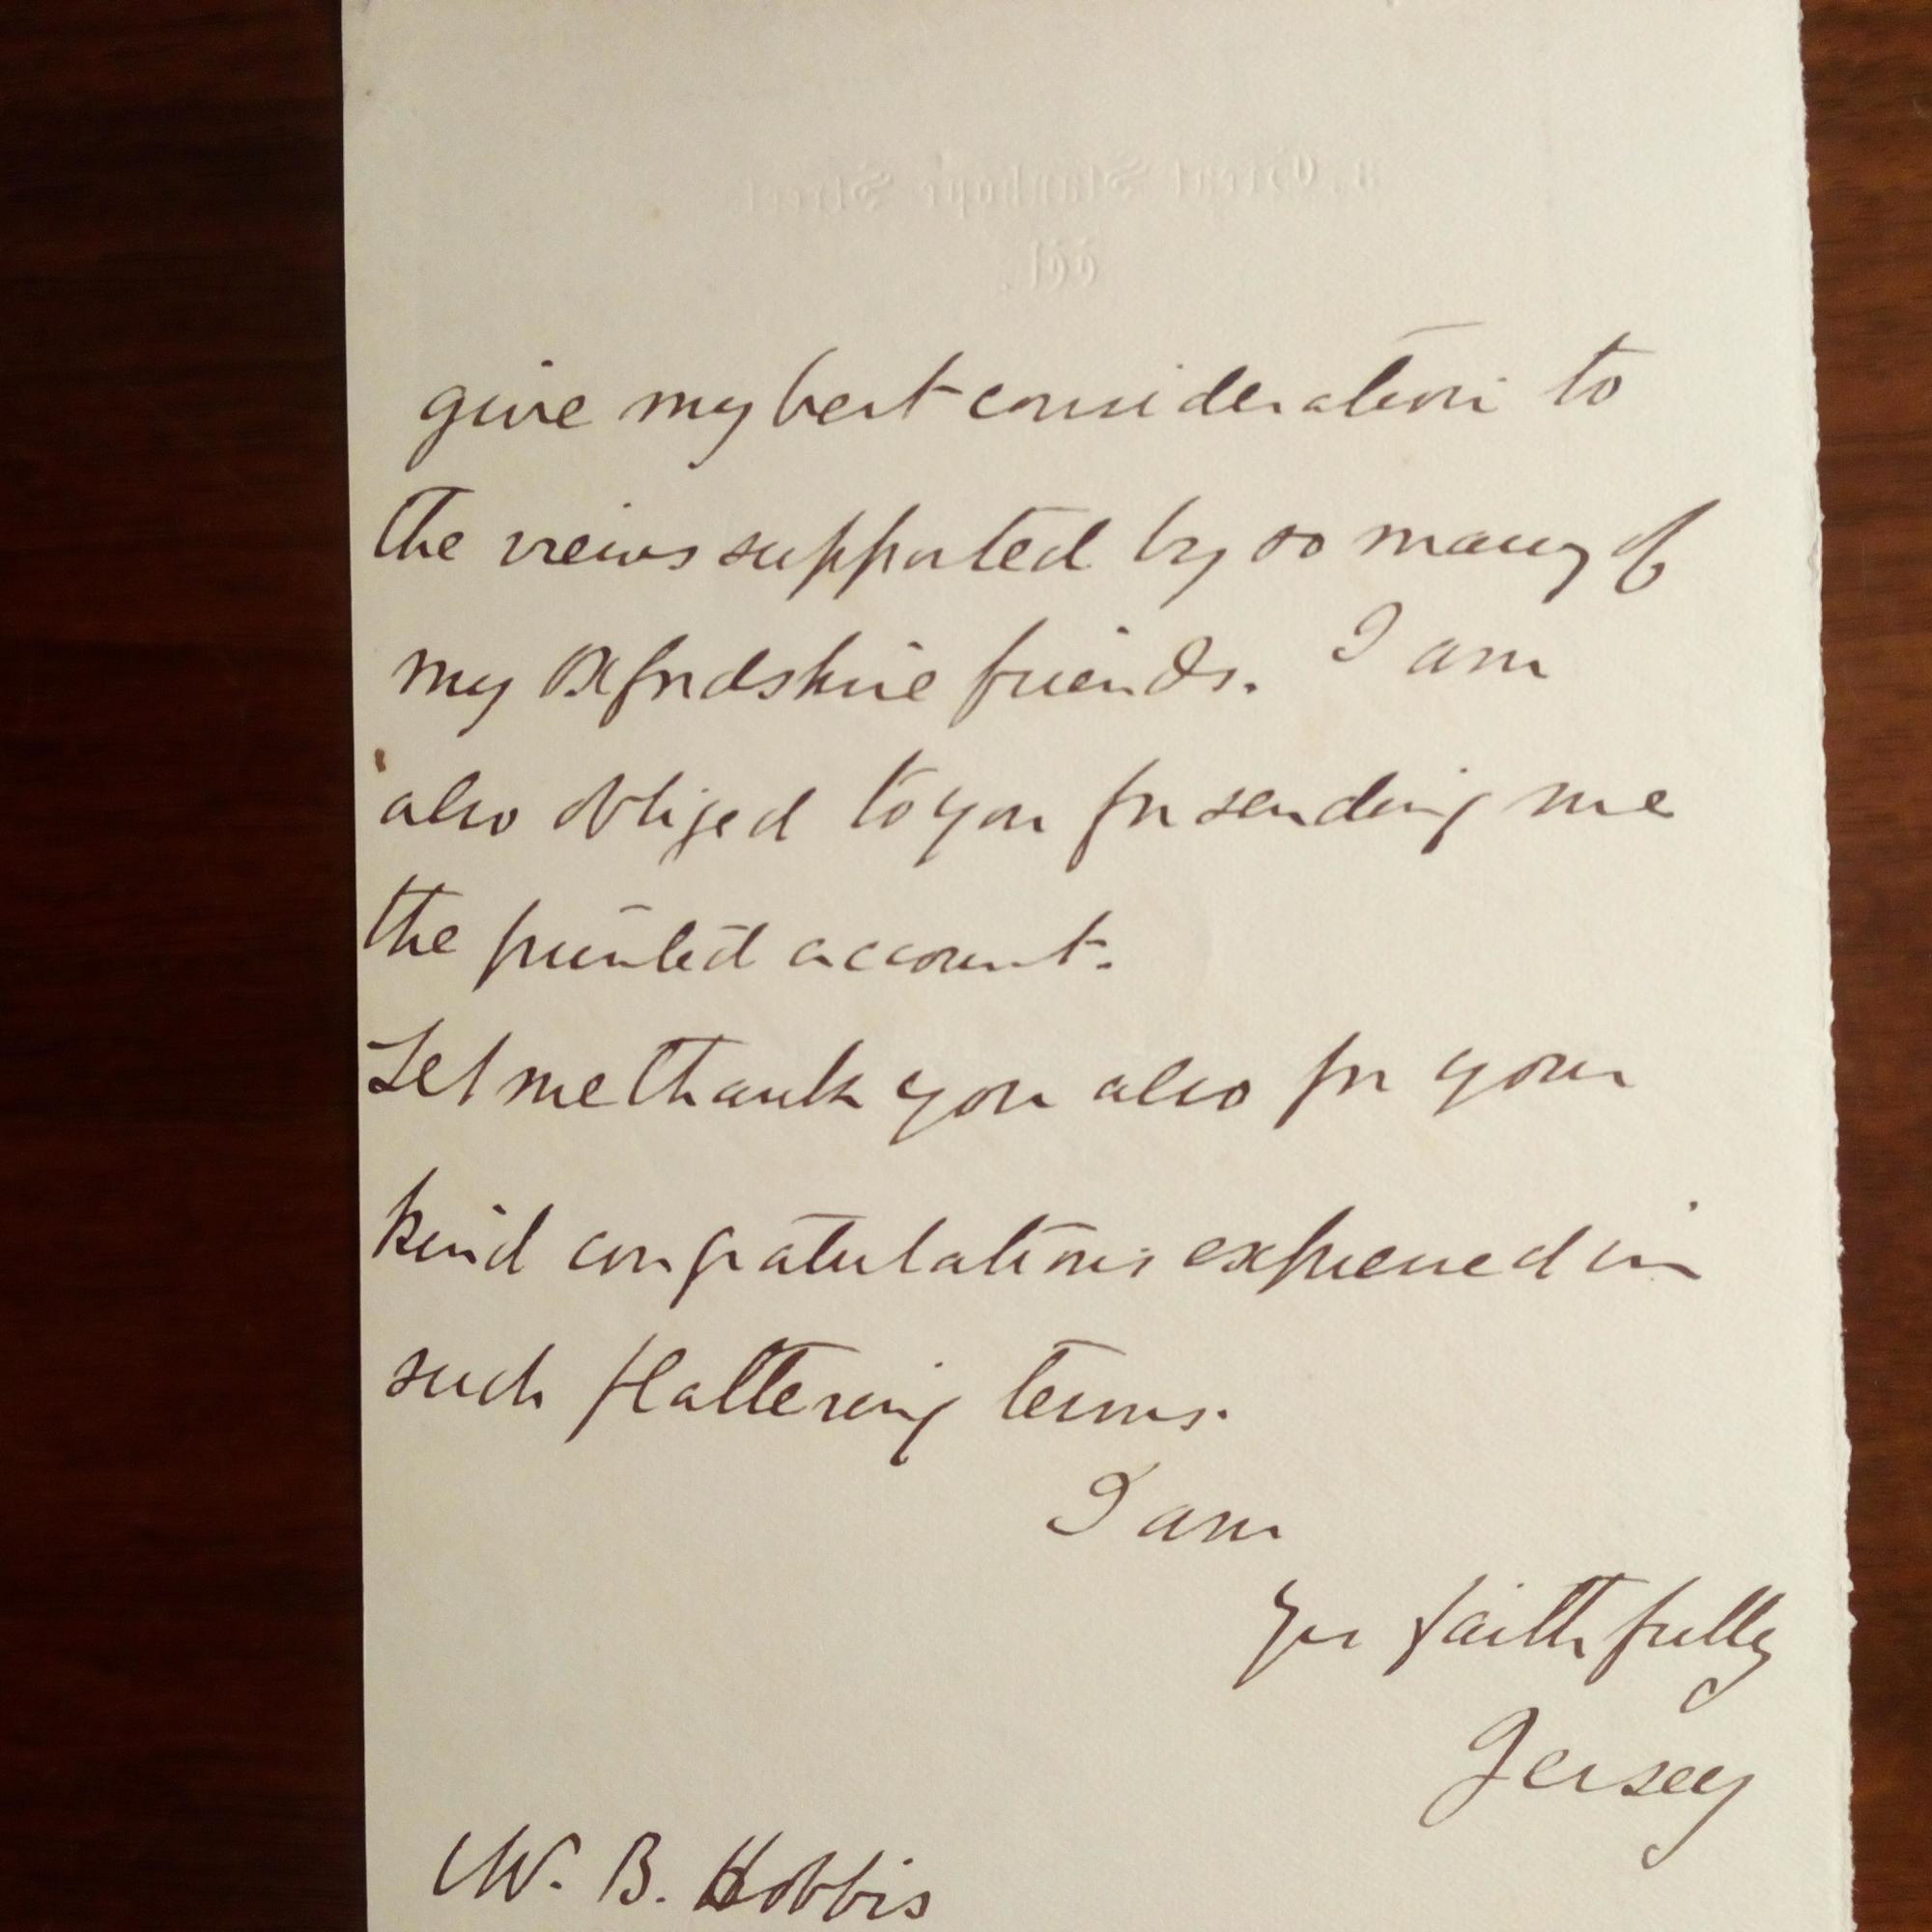 3, Great Stanhope Street
W.
give my best consideration to
the views supported by so many of
my Oxfordshire friends. I am
also obliged to you for sending me
the printed account.
Let me thank you also for your
kind congratulations expressed in
such flattering terms.
I am
Yrs faithfully
Jersey
W. B. Hobbis